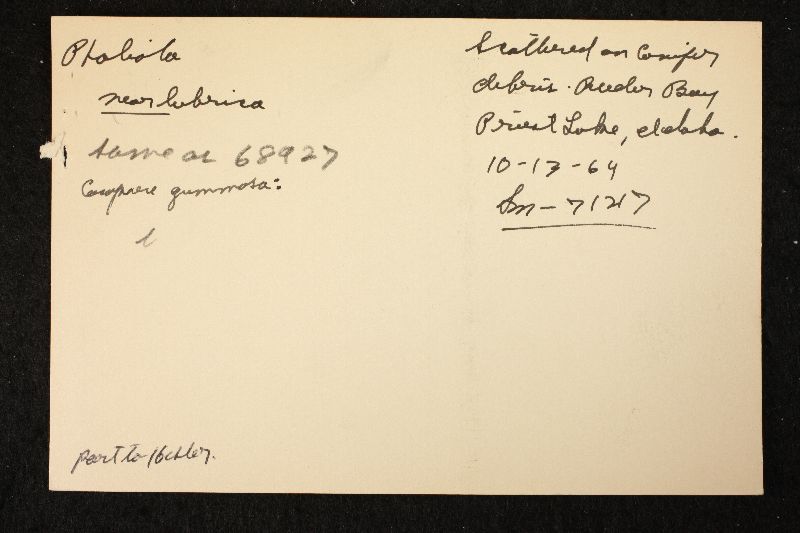 Pholiota
near lubrica
same as 68927
Compare gummosa:
part to Hesler.
Scattered on Conifer
debris. Reeder Bay
Priest Lake, Idaho.
10-13-64
Sm-71217